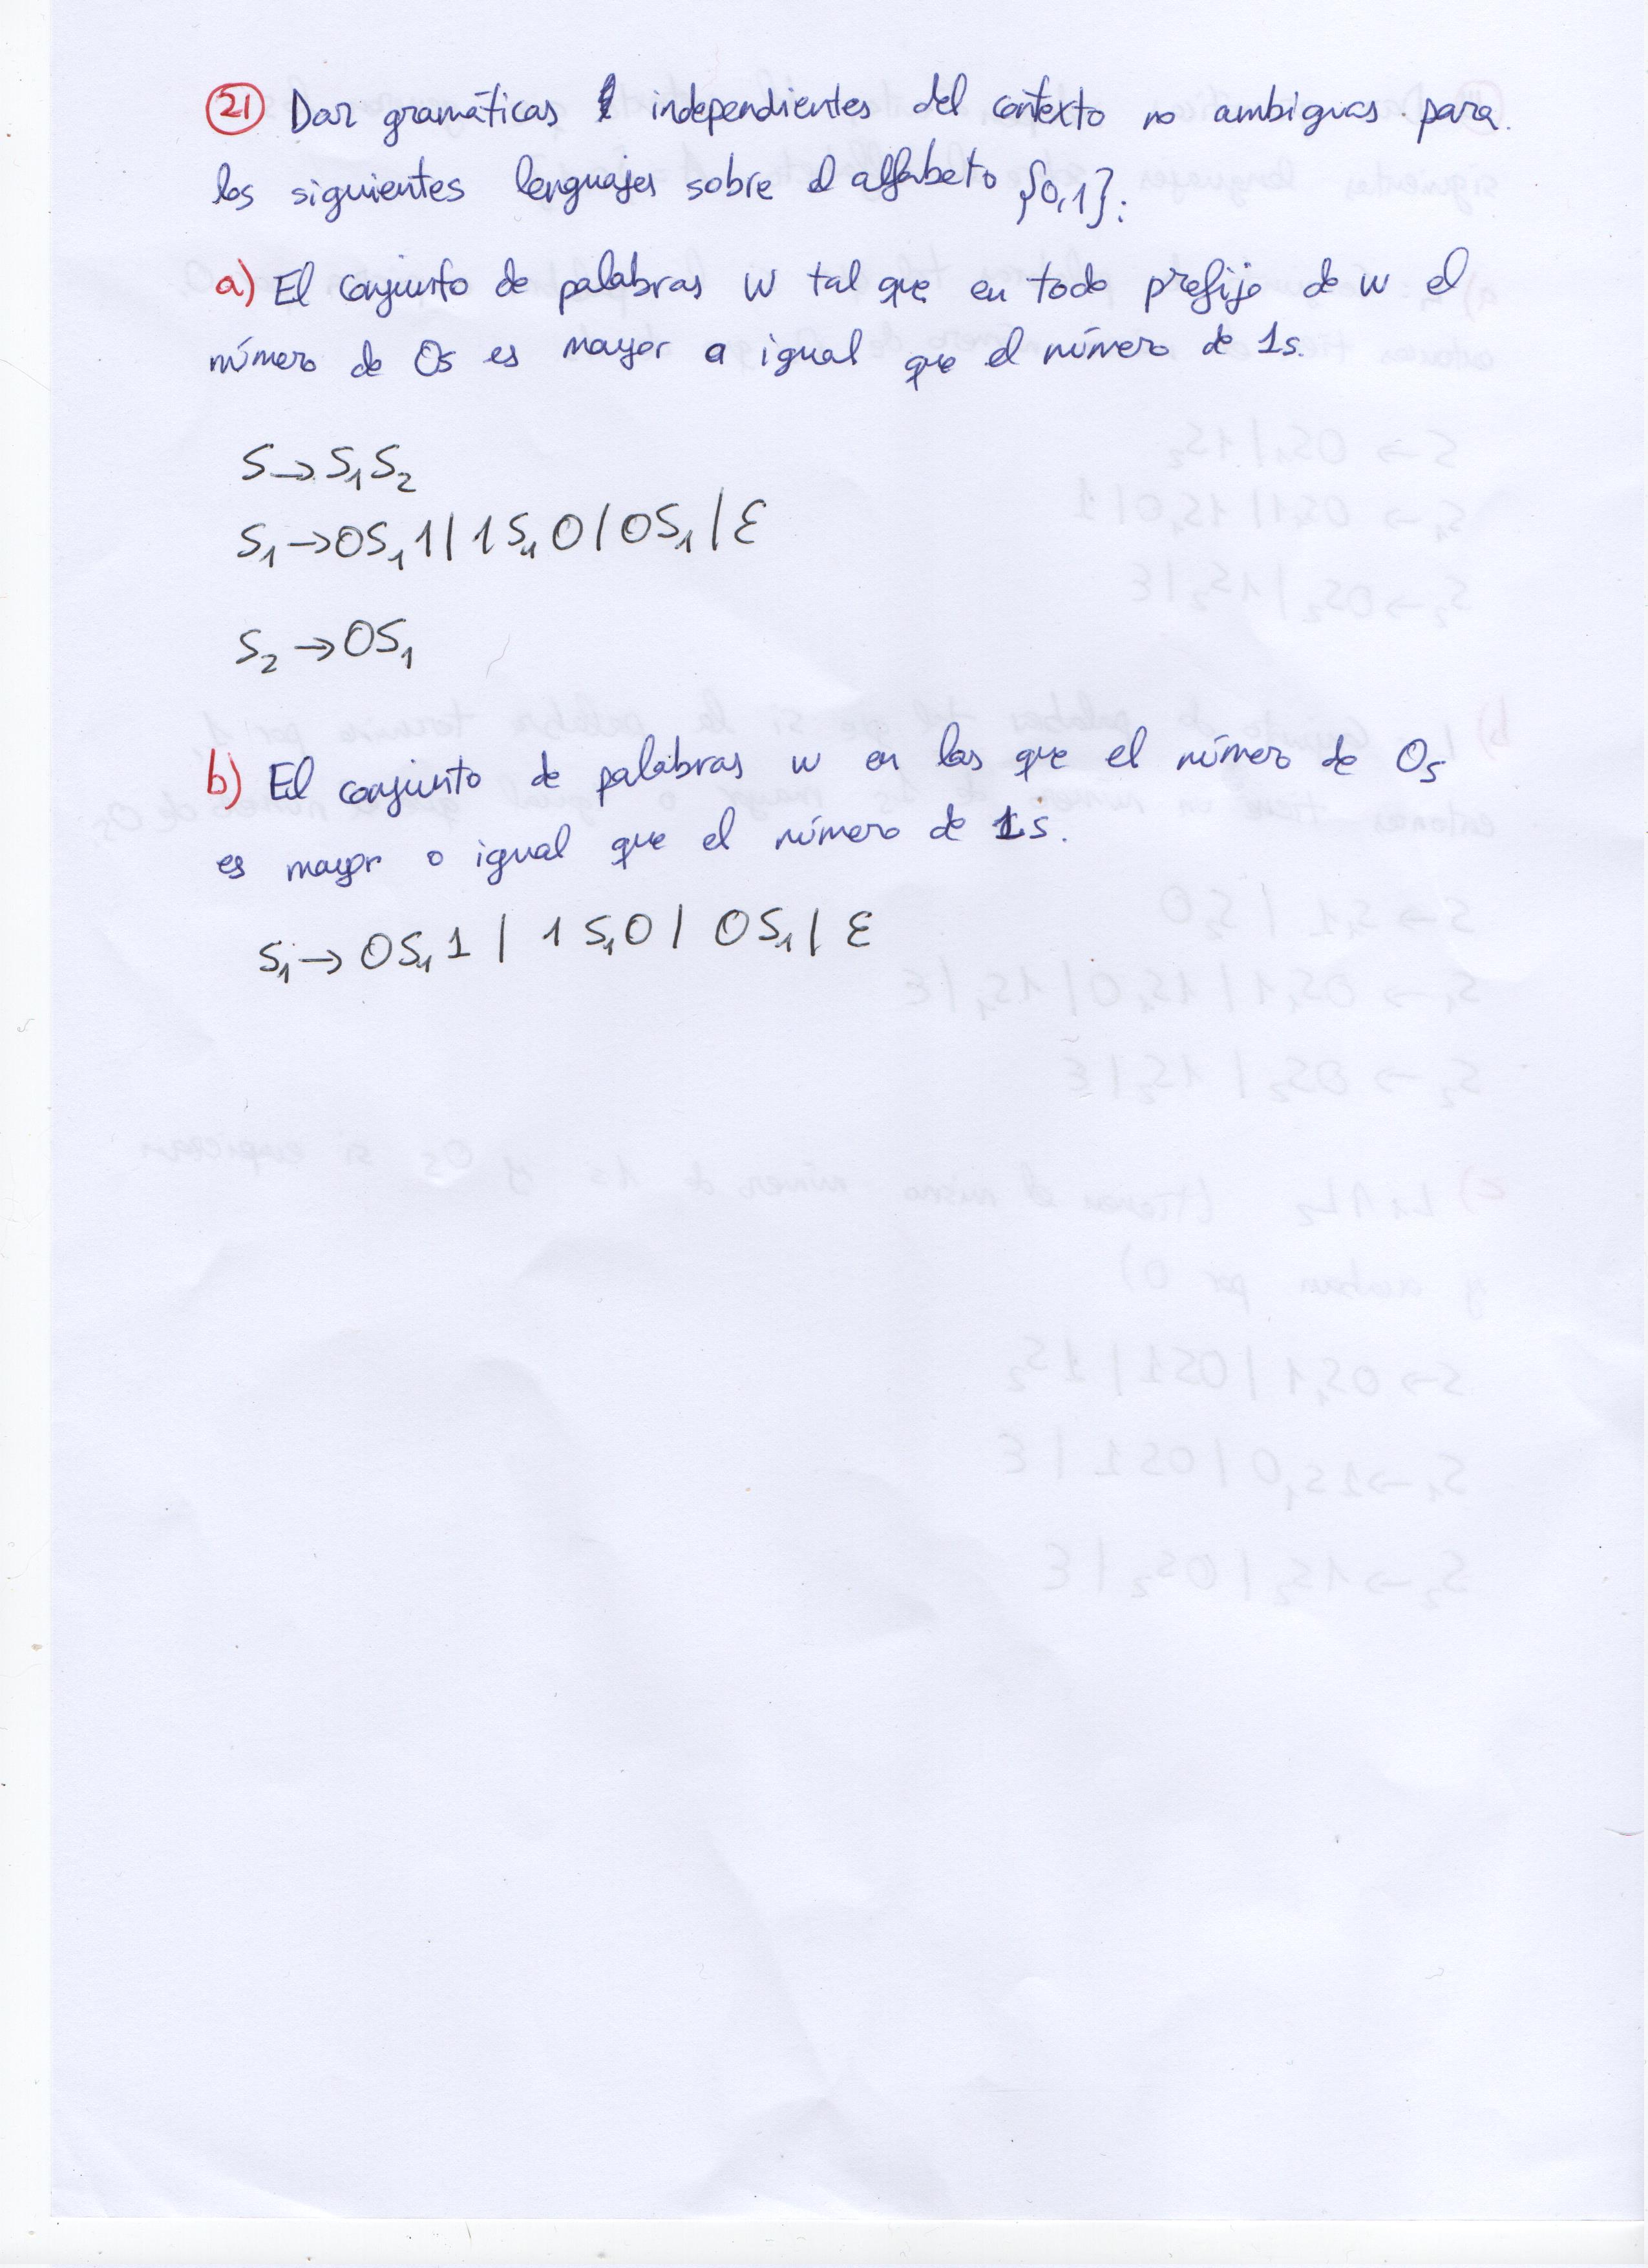 21 Dar gramáticas independientes del contexto no ambiguas para
los siguientes lenguajes sobre el alfabeto {0,1}:
a) El conjunto de palabras w tal que en todo prefijo de w el
número de 0s es mayor o igual que el número de 1s.
S→S₁S₂
S₁→0S₁1|1S₁0|0S₁|ε
S₂→0S₁
b) El conjunto de palabras w en las que el número de 0s
es mayor o igual que el número de 1s.
S₁→0S₁1|1S₁0|0S₁|ε